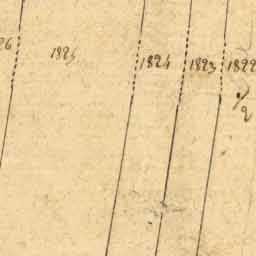 26 1825 1824 1823 1822
9/2